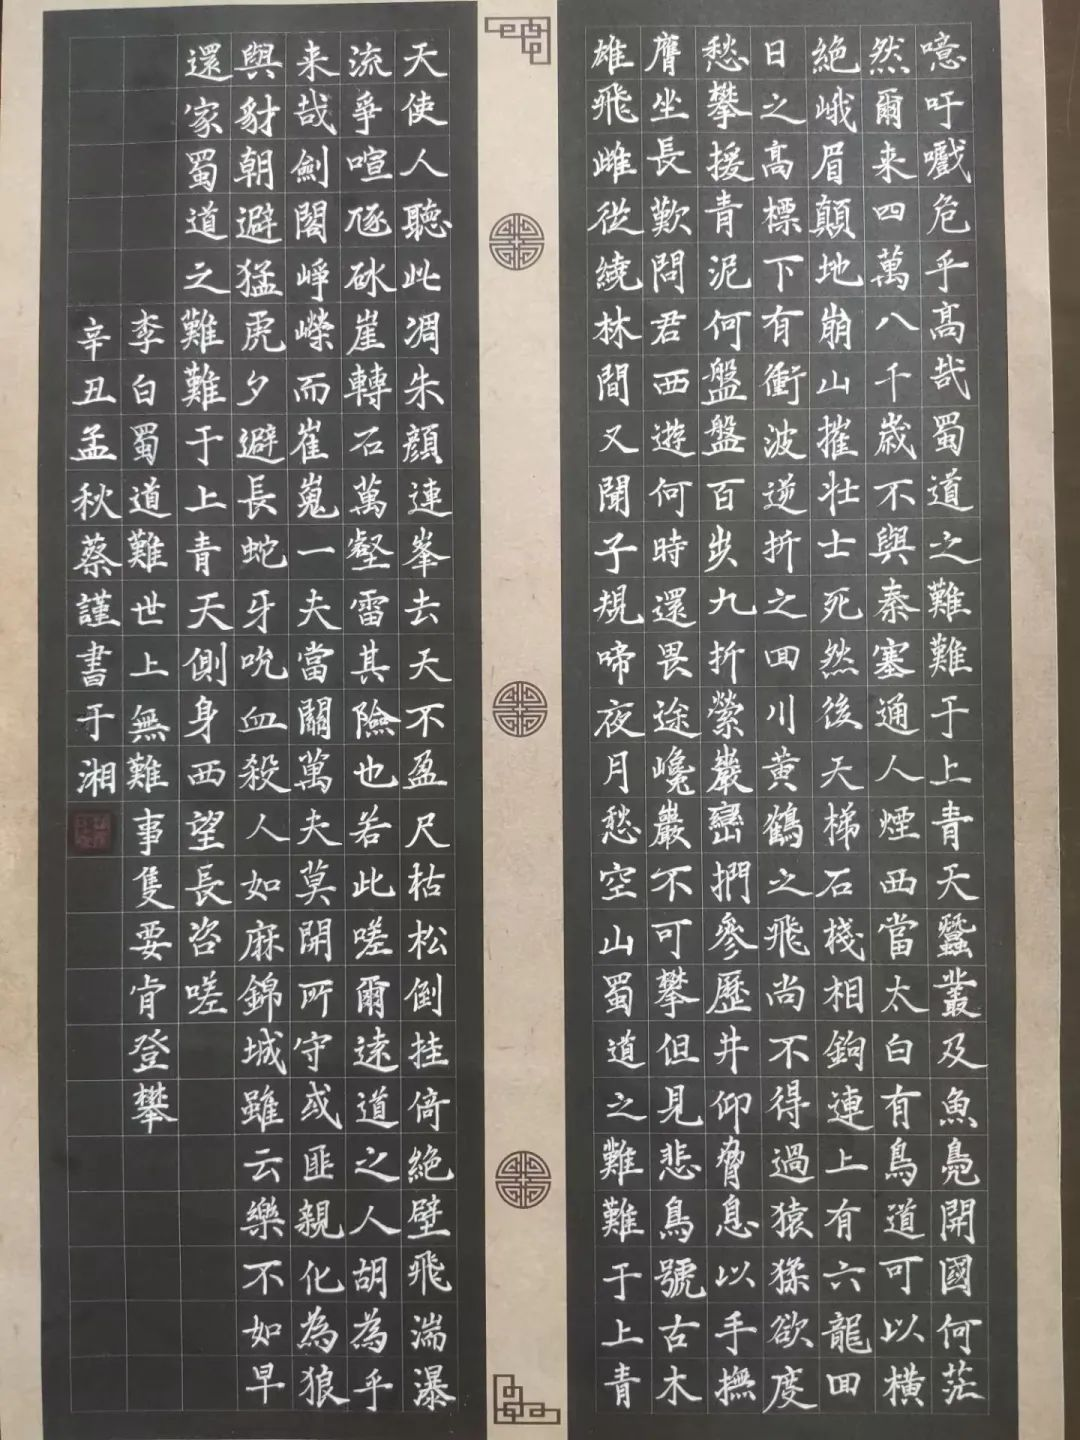 噫吁嚱危乎高哉蜀道之難難于上青天蠶叢及魚鳧開國何茫
然爾来四萬八千歲不與秦塞通人煙西當太白有鳥道可以橫
絕峨眉巔地崩山摧壯士死然後天梯石棧相鉤連上有六龍回
日之高標下有衝波逆折之回川黃鶴之飛尚不得過猿猱欲度
愁攀援青泥何盤盤百步九折縈巖巒捫參歷井仰脅息以手撫
膺坐長歎問君西遊何時還畏途巉巖不可攀但見悲鳥號古木
雄飛雌從繞林間又聞子規啼夜月愁空山蜀道之難難于上青
天使人聽此凋朱顏連峯去天不盈尺枯松倒挂倚絕壁飛湍瀑
流爭喧豗砯崖轉石萬壑雷其險也若此嗟爾遠道之人胡為乎
来哉劍閣崢嶸而崔嵬一夫當關萬夫莫開所守或匪親化為狼
與豺朝避猛虎夕避長蛇磨牙吮血殺人如麻錦城雖云樂不如早
還家蜀道之難難于上青天側身西望長咨嗟
李白蜀道難世上無難事隻要肯登攀
辛丑孟秋蔡謹書于湘